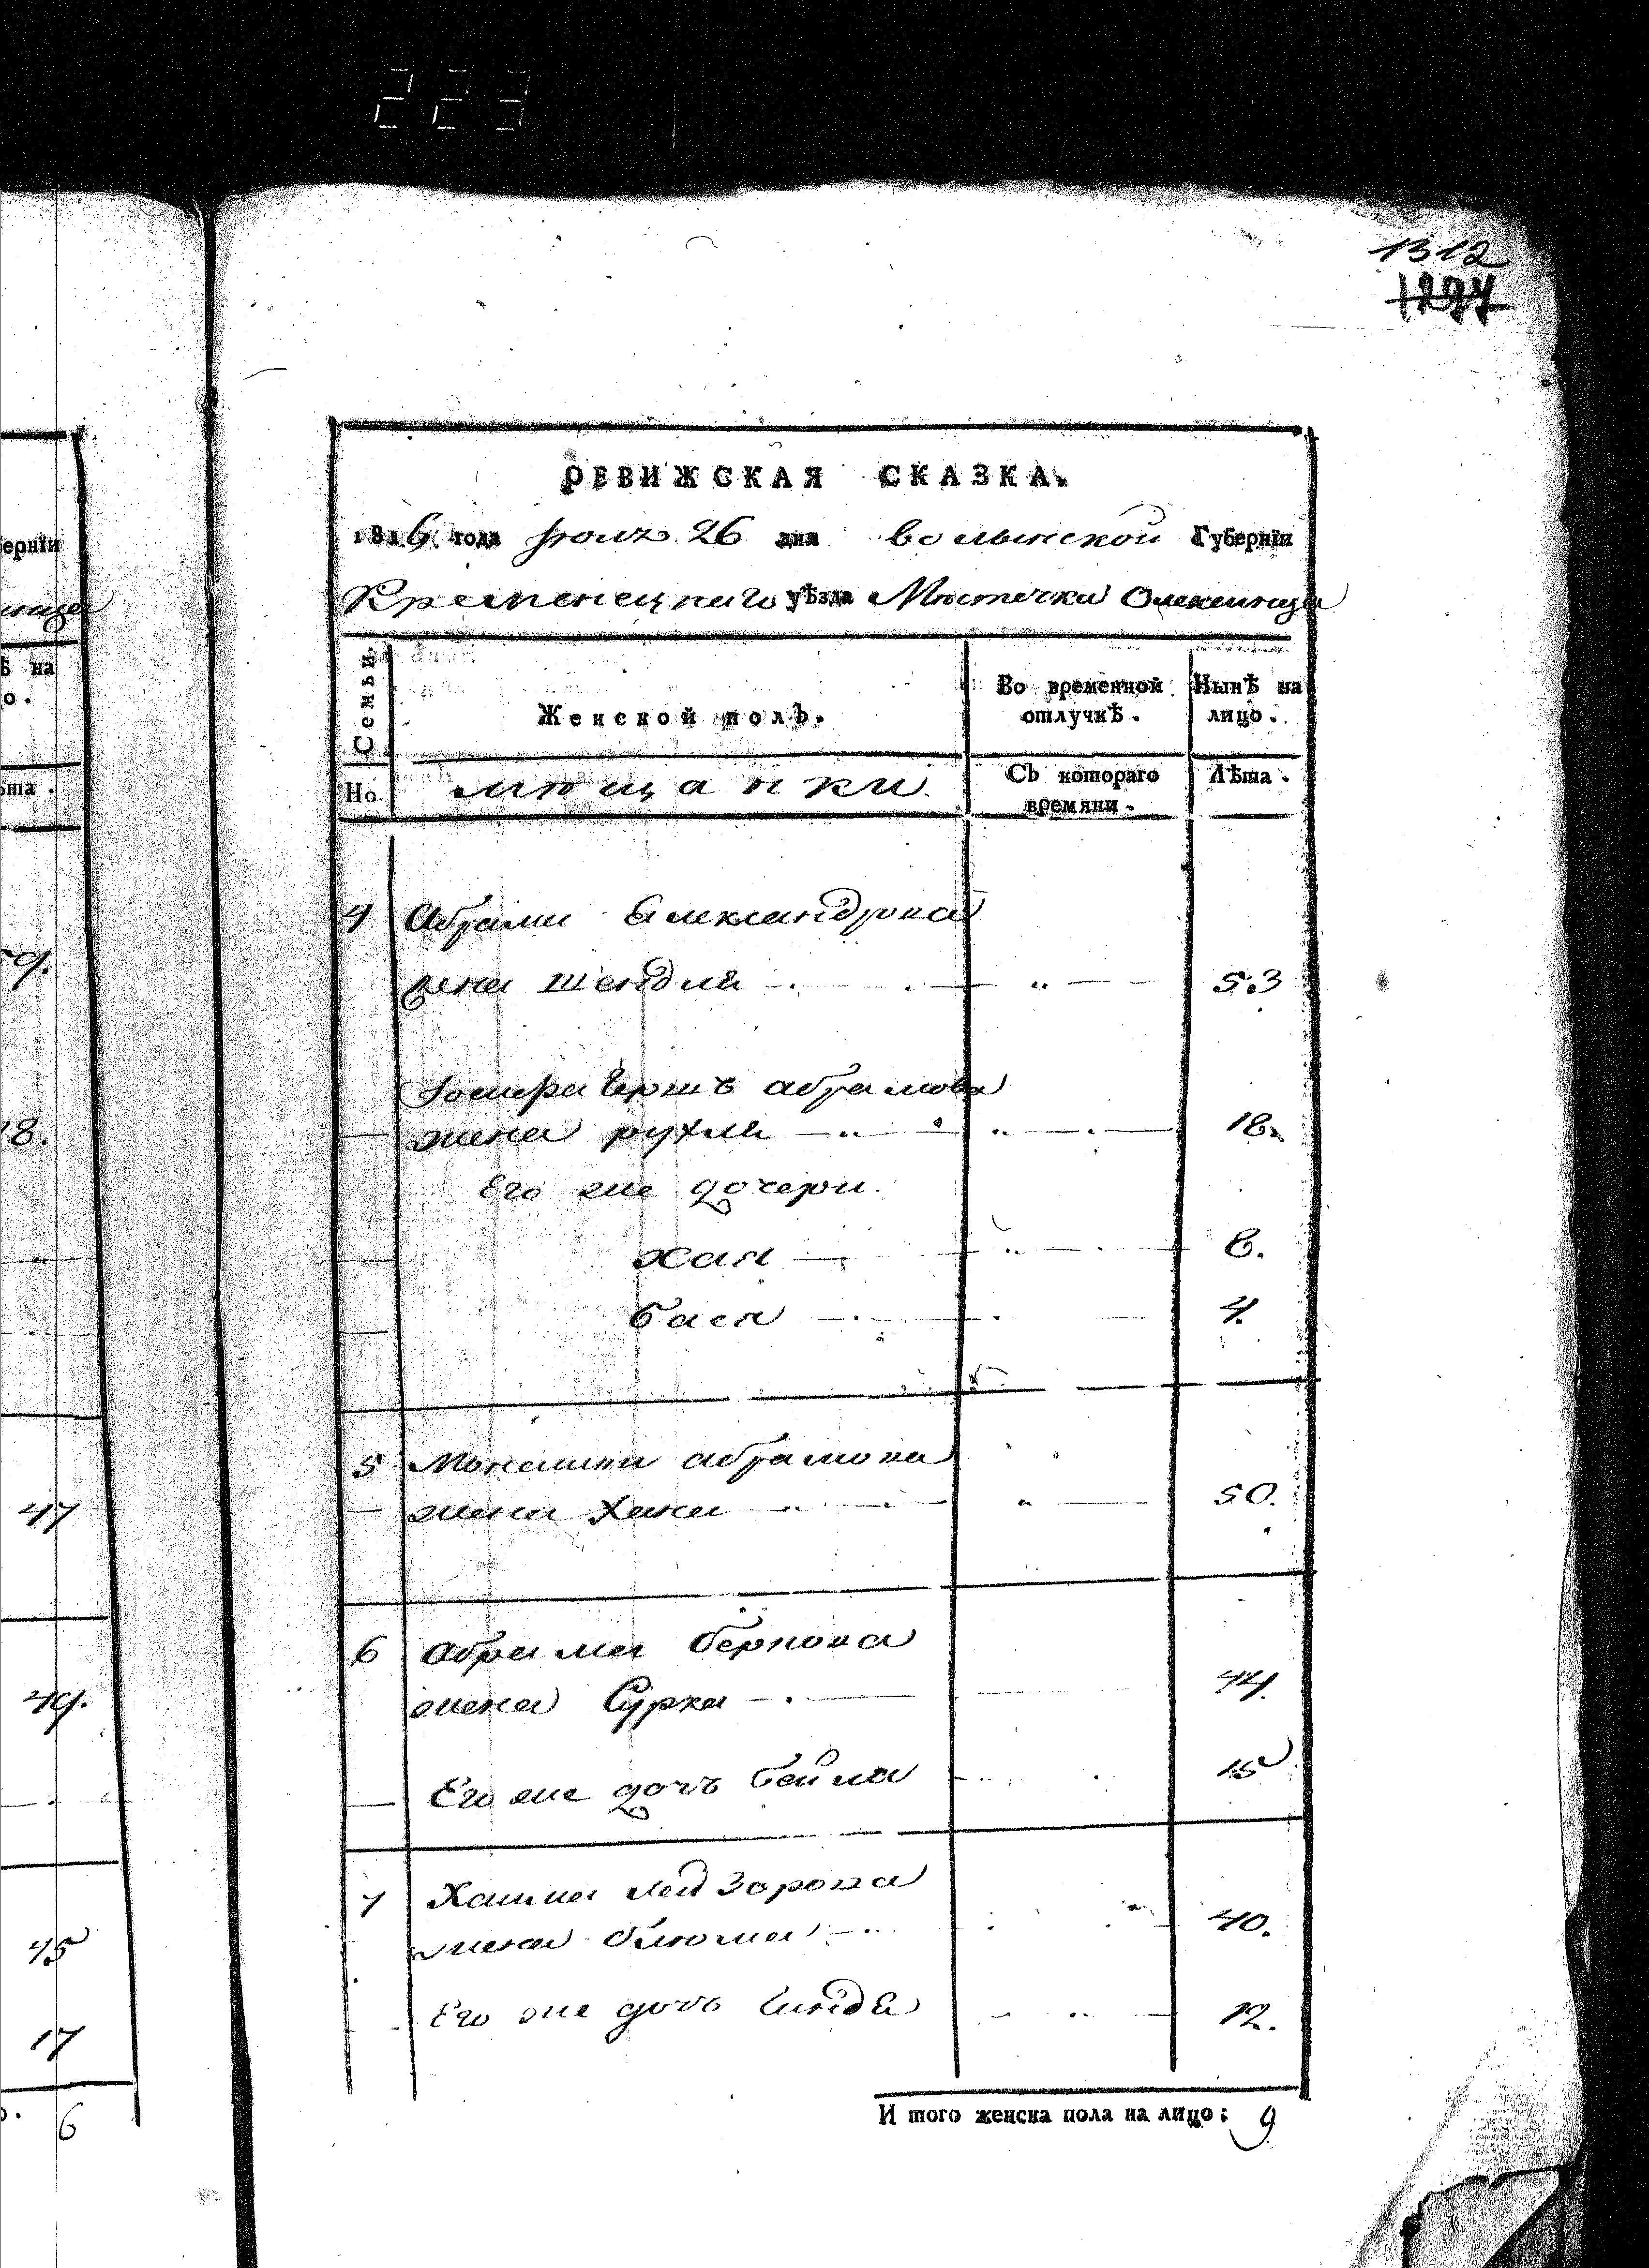 223
1312
1297
ерніи
ница
ѣ на
о.
ѣта.
59.
18.
47
49.
45
17
о. 6
РЕВИЖСКАЯ СКАЗКА.
1816 года 26 дня волынской Губерніи
Кременецкаго уѣзда Мѣстечка Олексинца
Семьи.
Женской полъ.
Во временной отлучкѣ.
Нынѣ на лицо.
Но. мѣщанки.
Съ котораго времяни.
Лѣта.
4 Абрами Александрова
жена Шендля 53
Ершъ абрамова
жена рухля 18.
Его же дочери.
хая 6.
бася 4.
5 абрамова
жена хана 50.
6 Абрама беркова
жена Сурка 44.
Его же дочь бейла 15
7 Хаима лейзорова
жена блюма 40.
Его же дочь 12.
И того женска пола на лицо: 9